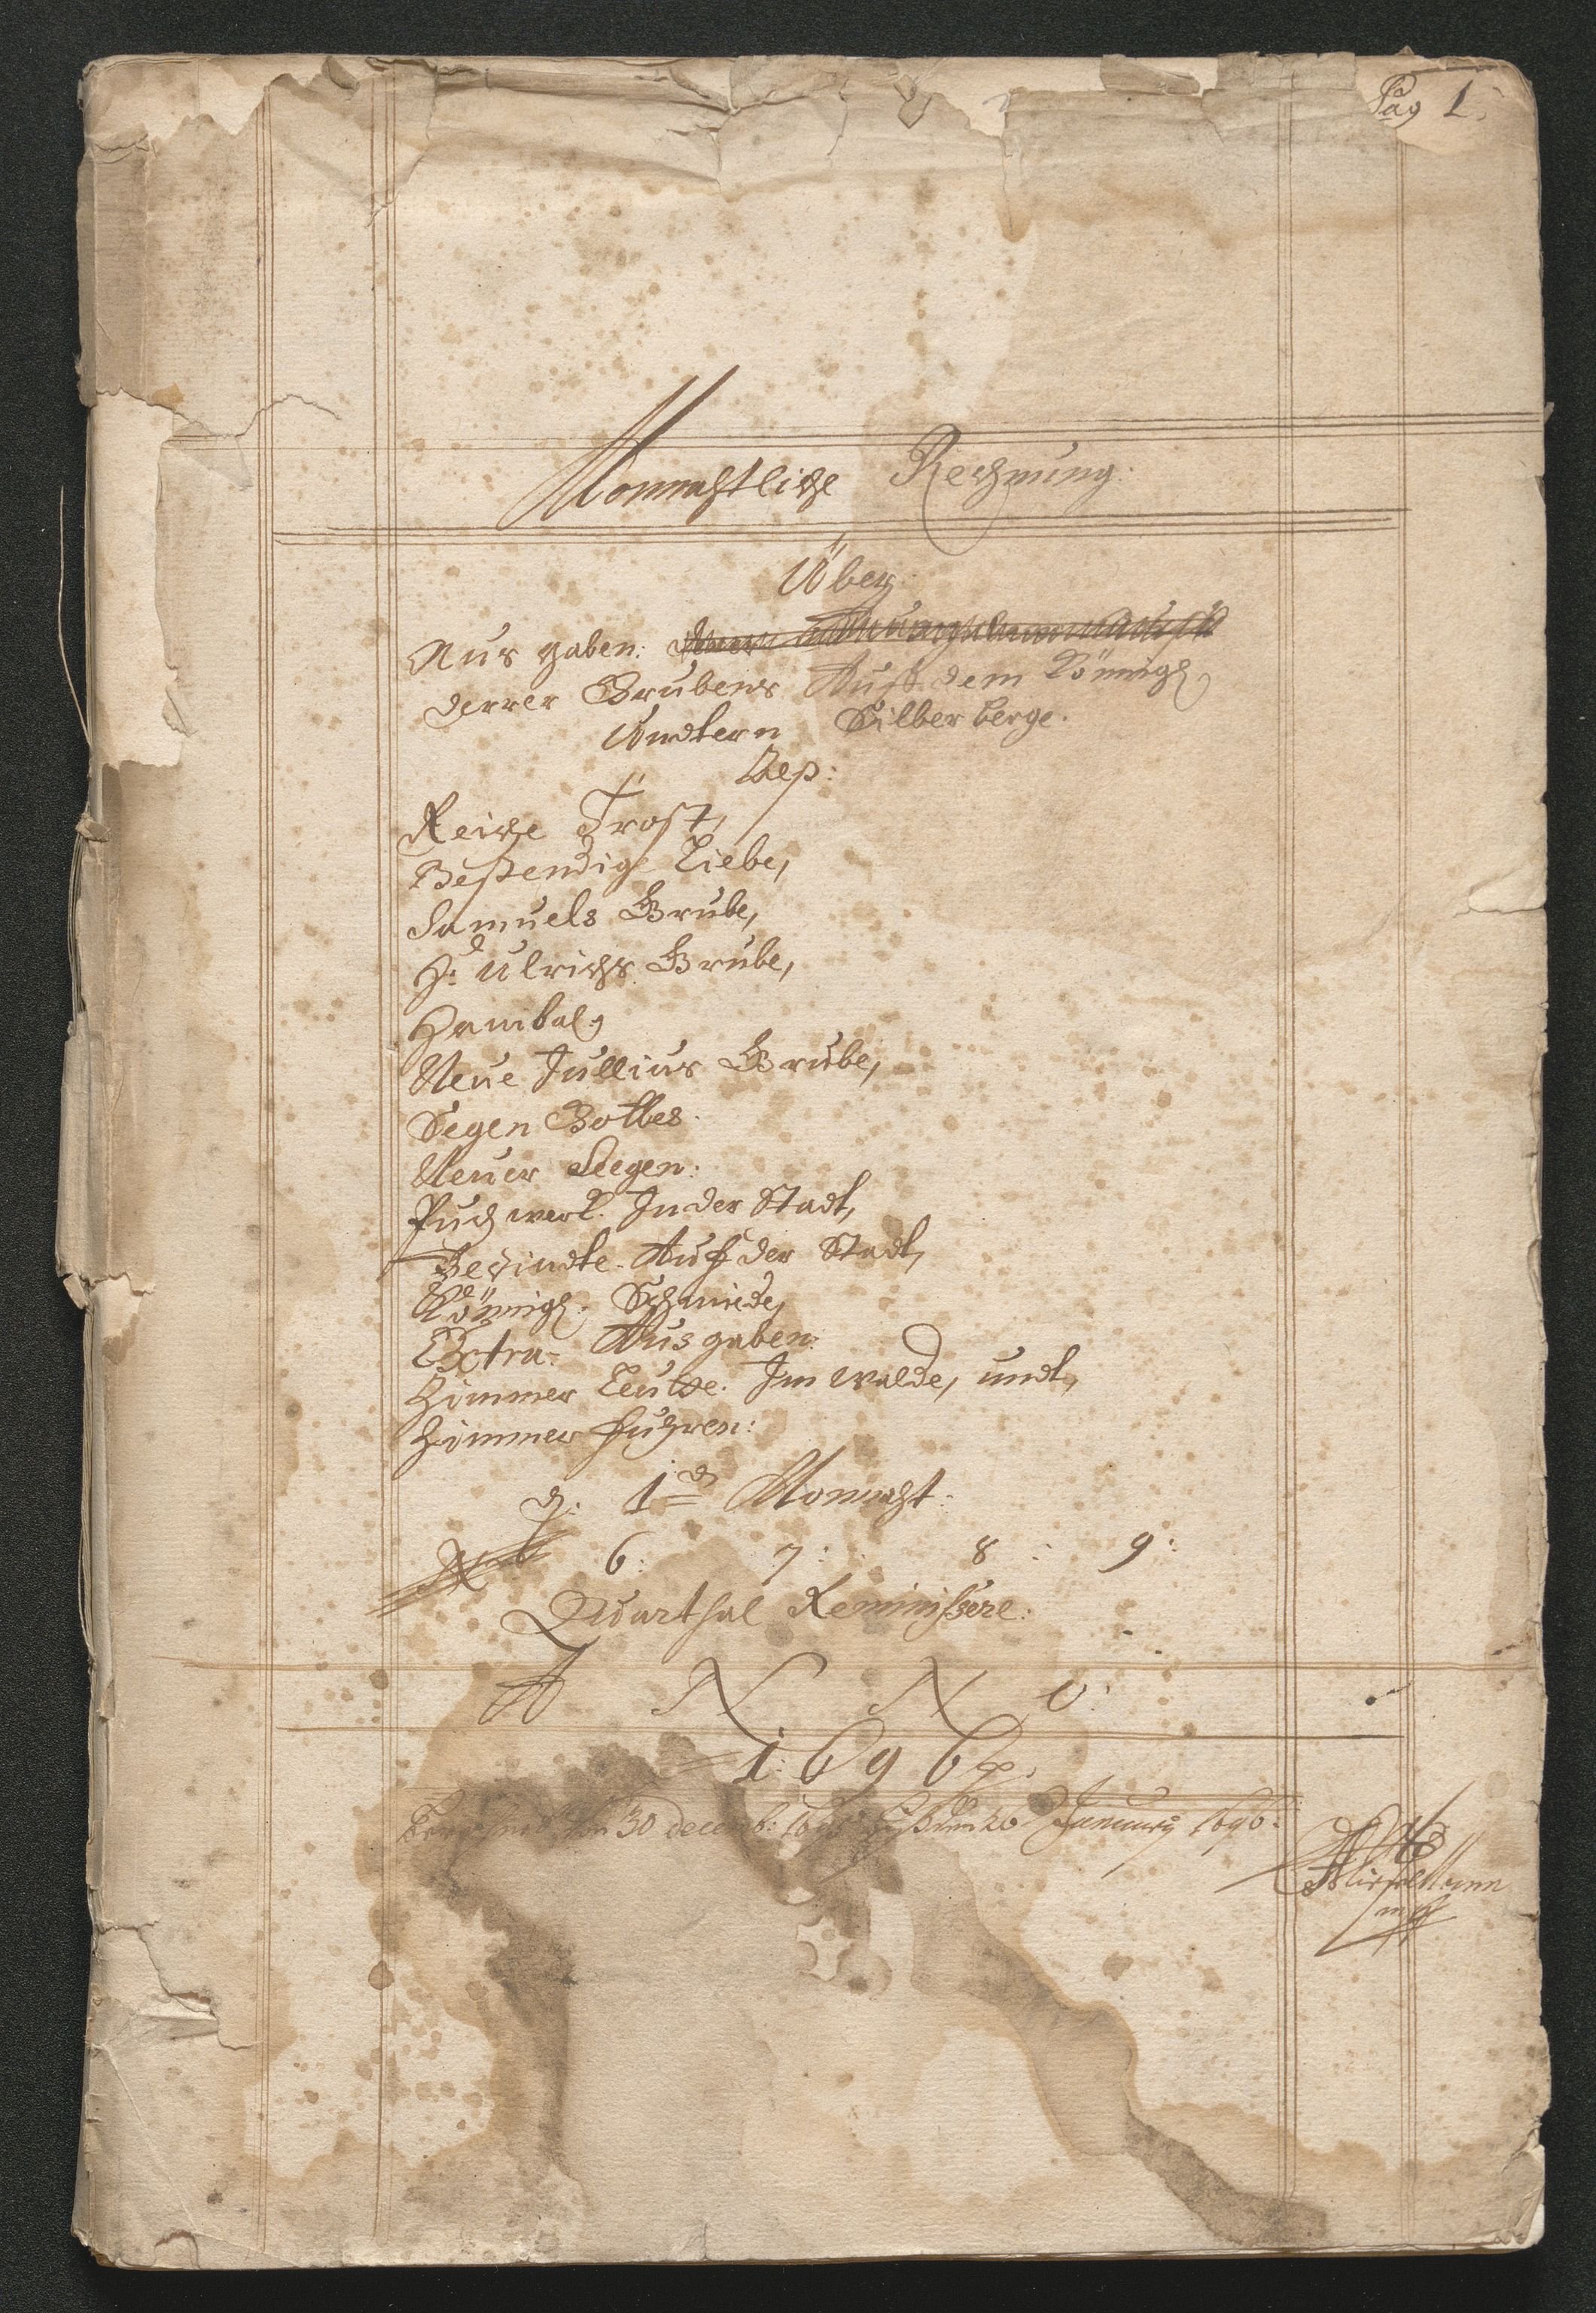 Pag 1.
Monnahtliche Rechnung:
Über
Aus gaben:
derer Grubens Auf dem Königl,
Undtern Silber berge.
Als:
Reiche Trost,
Bestendige Liebe,
Samuels Grube,
H: Ulrichs Grube,
Hanibal,
Neue Jullius Grube,
Segen Gottes.
Neuer Seegen:
Puch werk. In der Stadt,
Gesindte. Auf der Stadt,
Königl. Schmiede,
Extra- Aus gaben:
Zimmer Leutte. Im walde, undt,
Zimmer fuhren:
d: 1 Monnaht:
6: 7: 8: 9:
Qwarthal Reminissere:
A N N O:
1696
den 30 decemb: 1695 biß den 26 January 1696.